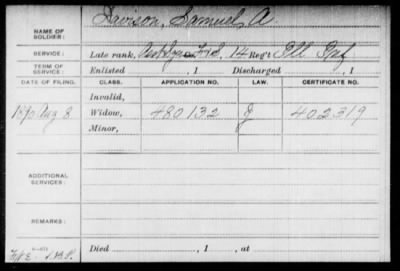 NAME OF SOLDIER: Davison, Samuel A.
SERVICE: Late rank, 14 Reg't Ill. Inf.
TERM OF SERVICE: Enlisted , 1 Discharged , 1
DATE OF FILING. CLASS. APPLICATION NO. LAW. CERTIFICATE NO.
Invalid,
1890 Aug 8 Widow, 480132 402319
Minor,
ADDITIONAL SERVICES:
REMARKS:
Died , 1 , at